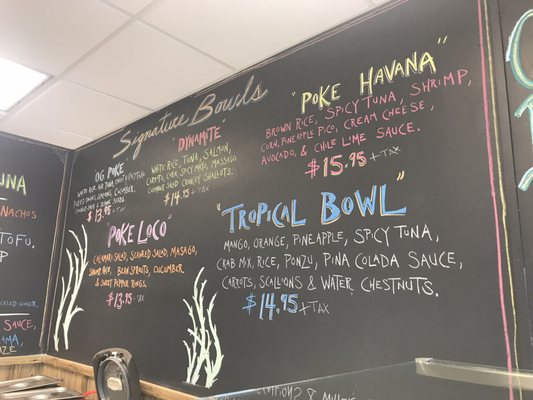 Signature Bowls
"OG POKE"
CUCUMBER,
$13.95 +TAX
"DYNAMITE"
WHITE RICE, TUNA, SALMON,
CARROTS, CORN, SPICY MAYO, MASAGO
CUCUMBER SALAD CRUNCHY SHALLOTS.
$14.95 +TAX
"POKE LOCO"
CALAMARI SALAD, SEAWEED SALAD, MASAGO,
RICE, BEAN SPROUTS, CUCUMBER
& SWEET PEPPER RINGS.
$13.95 +TAX
"POKE HAVANA"
BROWN RICE, SPICY TUNA, SHRIMP,
CORN, PINEAPPLE PICO, CREAM CHEESE,
AVOCADO, & CHILE LIME SAUCE.
$15.95 +TAX
"TROPICAL BOWL"
MANGO, ORANGE, PINEAPPLE, SPICY TUNA,
CRAB MIX, RICE, PONZU, PINA COLADA SAUCE,
CARROTS, SCALLIONS & WATER CHESTNUTS.
$14.95 +TAX
UNA"
NACHOS
TOFU
GINGER
SAUCE,